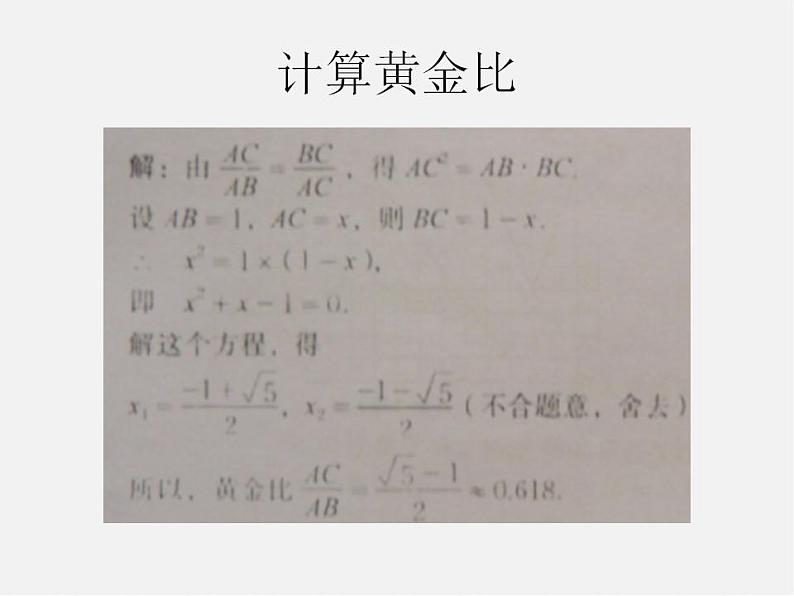 计算黄金比
解：由 AC/AB = BC/AC，得 AC² = AB · BC.
设 AB = 1，AC = x，则 BC = 1 − x.
∴ x² = 1 × (1 − x)，
即 x² + x − 1 = 0.
解这个方程，得
x₁ = (−1 + √5)/2，x₂ = (−1 − √5)/2（不合题意，舍去）
所以，黄金比 AC/AB = (√5 − 1)/2 ≈ 0.618.